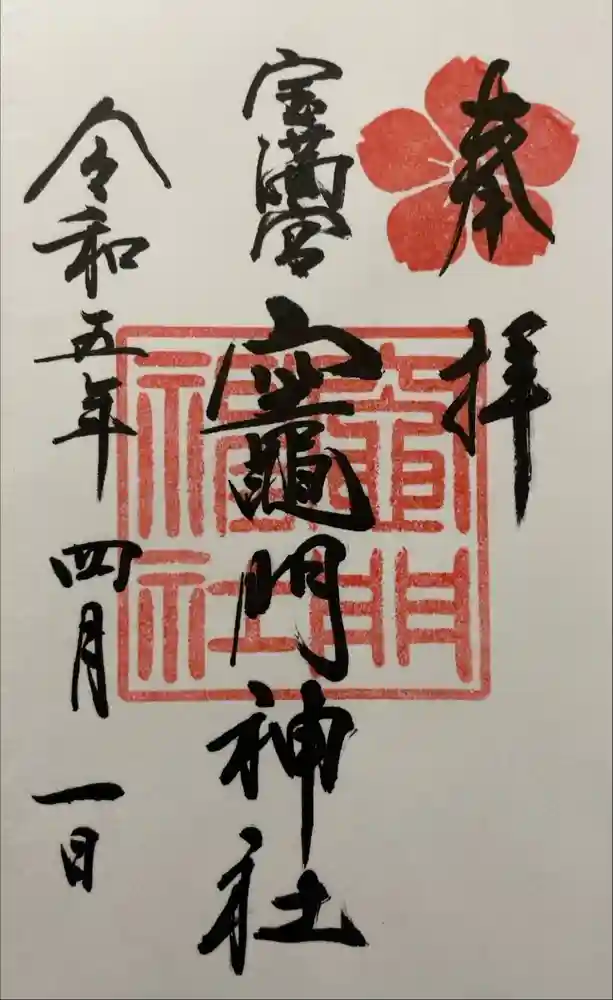 奉拝
宝満宮
竈門神社
竈門
神社
令和五年四月一日